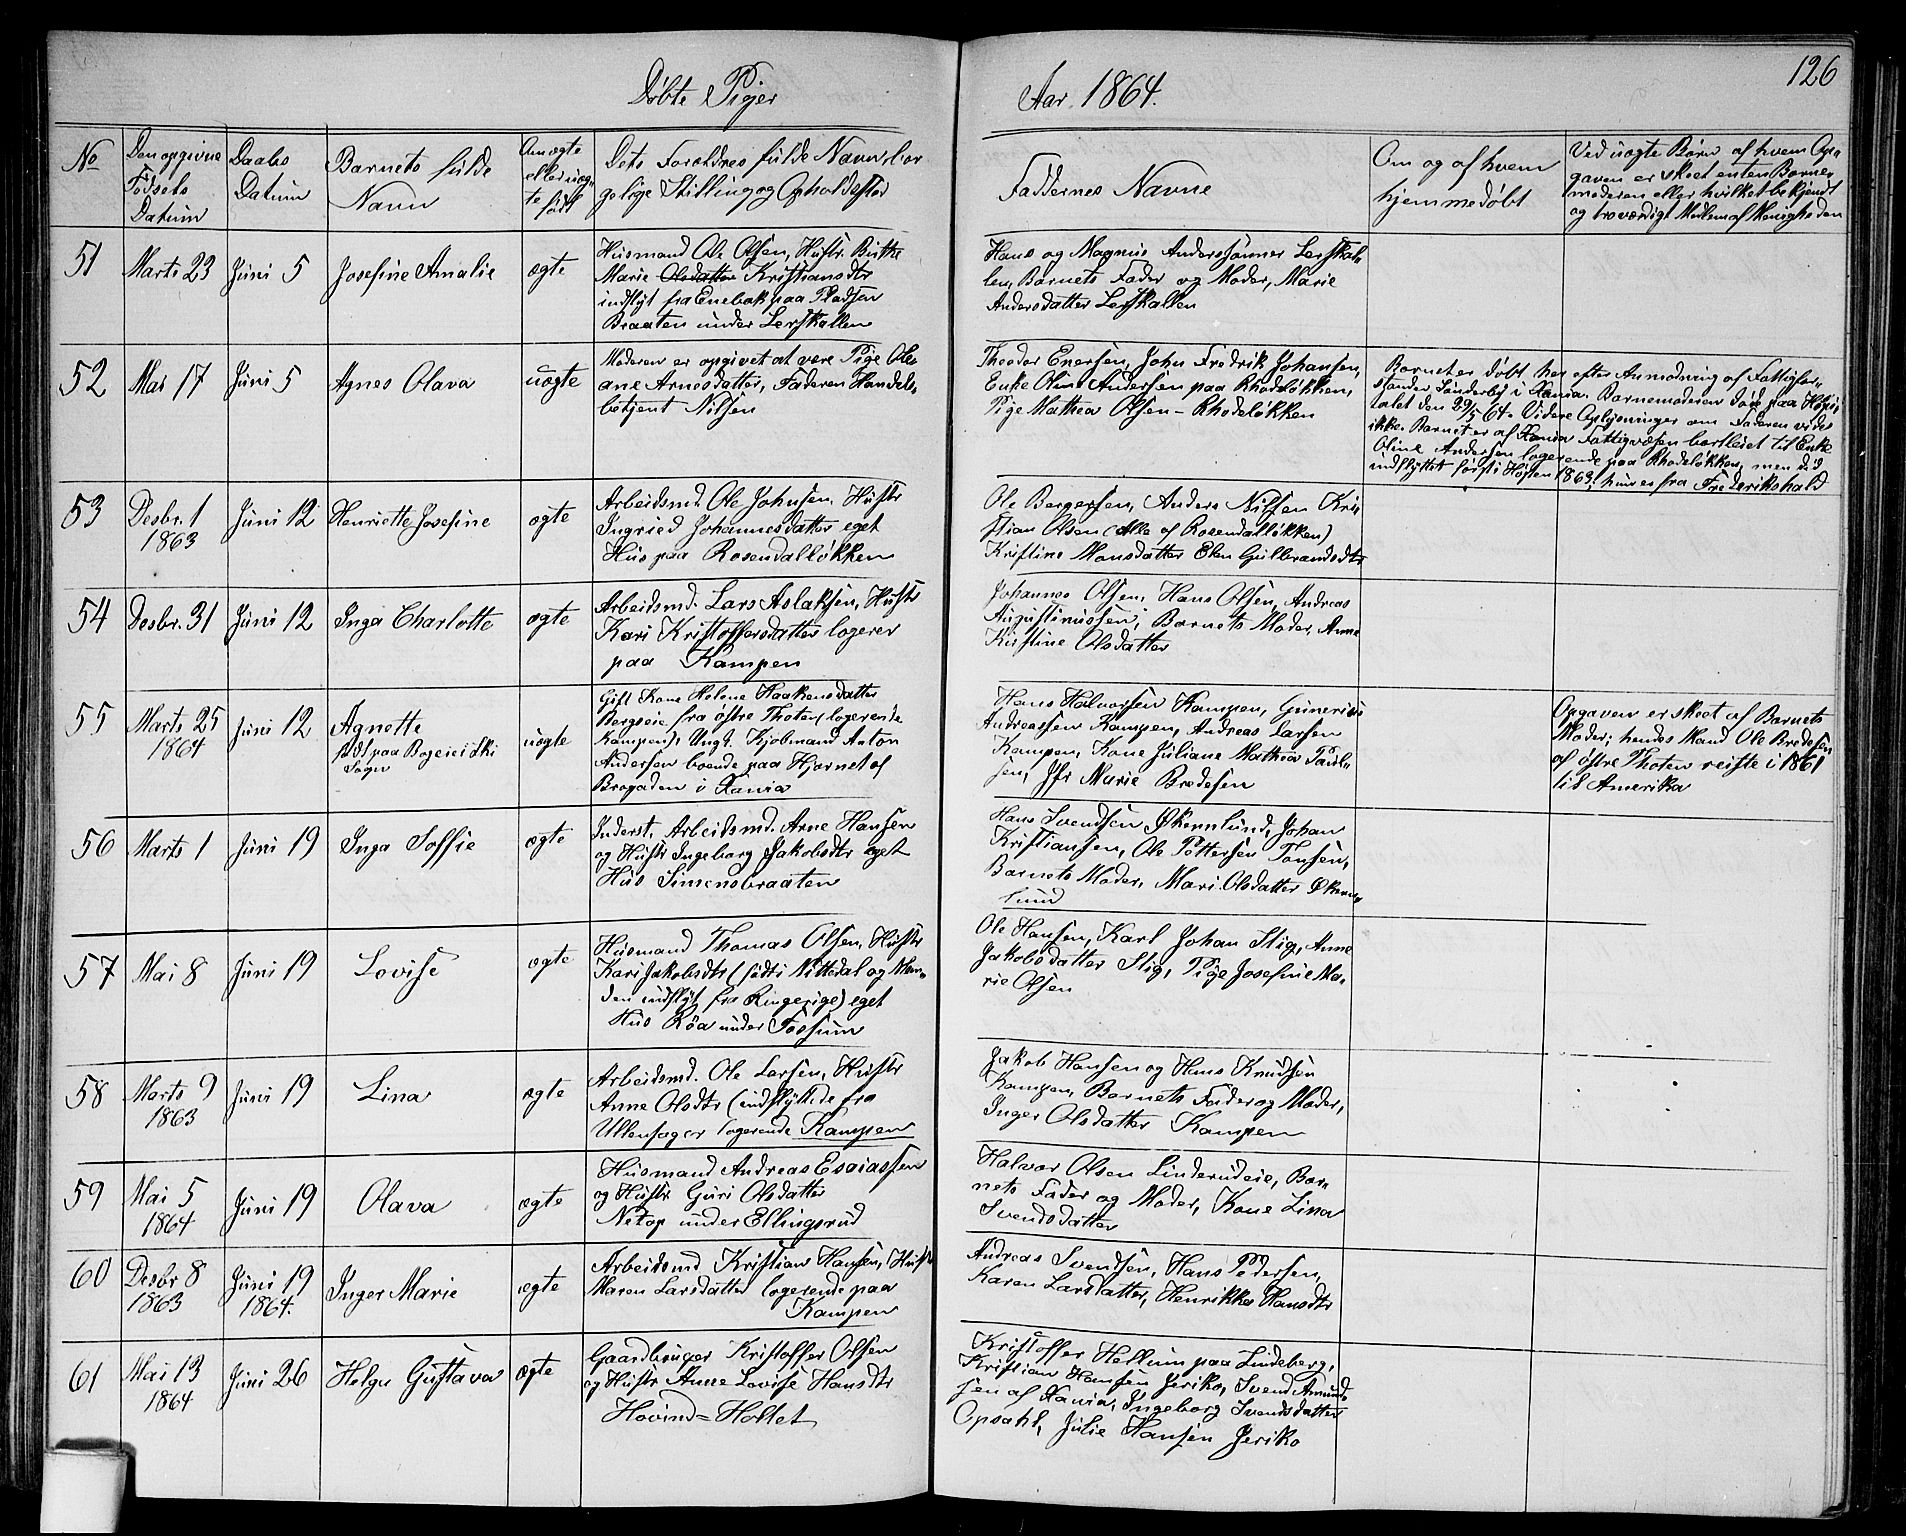 126
Døbte Piger
Aar 1864.
No
Den opgivne
Fødsels
Datum
Daabs
Datum
Barnets fulde
Navn
Om ægte
eller uæg-
te født
Dets Forældres fulde Navn bor
gelige Stilling og Opholdssted
Faddernes Navne
Om og af hvem
hjemmedøbt
Ved uægte Børn af hvem Op-
gaven er skeet enten Barne-
moderen eller hvilket bekjendt
og troværdigt Medlem af Menigheden
51
Marts 23
Juni 5
Josefine Amalie
ægte
Husmand Ole Olsen, Hustr. Birthe
Marie Olsdatter Kristiansdtr
indflyt fra Enebak paa Pladsen
Braaten under Lerskallen
Hans og Magnus Anderssønner Lerskal-
len, Barnets Fader og Moder, Marie
Andersdatter Lerskallen
52
Mai 17
Juni 5
Agnes Olava
uægte
Moderen er opgivet at være Pige Ole-
ane Arnesdatter, Faderen Handels-
betjent Nilsen
Theodor Enersen, John Fredrik Johansen,
Enke Oline Andersen paa Rhodeløkken,
Pige Mathea Olsen - Rhodeløkken
Barnet er døbt her efter Anmodning af Fattigfor-
stander Sønderby i Xania. Barnemoderen døde paa Hospi-
talet den 29/5 64. Videre Oplysninger om Faderen vides
ikke. Barnet er af Xania Fattigvæsen bortleiet til Enke
Oline Andersen logerende paa Rhodeløkken, men did
indflyttet først i Høsten 1863, hun es fra Frederikshald
53
Desbr. 1
1863
Juni 12
Henriette Josefine
ægte
Arbeidsmd. Ole Johnsen. Hustr
Ingried Johannesdatter eget
Hus paa Rosendalløkken
Ole Bergersen, Anders Nilsen Kri-
stian Olsen (Alle af Rosendalløkken)
Kristine Monsdatter Elen Gulbrandsdtr
54
Desbr. 31
Juni 12
Inga Charlotte
ægte
Arbeidsmd. Lars Aslaksen, Hustr
Kari Kristoffersdatter logerer
paa Kampen
Johannes Olsen, Hans Olsen, Andreas
Augustinussen, Barnets Moder, Anne
Kristine Olsdatter
55
Marts 25
1864
Juni 12
Agnette
født paa Bøgeiei Ski
Sogn
uægte
Gift Kone Helene Haakensdatter
Bergseie fra østre Thoten (logerende
Kampen), Ungk. Kjøbmand Anton
Andersen boende paa Hjørnet af
Brogaden i Xania
Hans Halvorsen Kampen, Gunerius
Andreassen Kampen, Andreas Larsen
Kampen, Kone Juliane Mathea Paul-
sen, Jfr Marie Bredesen
Opgaven er skeet af Barnets
Moder; hendes Mand Ole Bredesen
af østre Thoten reiste i 1861
til Amerika
56
Marts 1
Juni 19
Inga Soffie
ægte
Inderst. Arbeidsmd. Arne Hansen
og Hustr Ingeborg Jakobsdtr eget
Hus Simensbraaten
Hans Svendsen Økernlund, Johan
Kristiansen, Ole Pettersen Tonsen,
Barnets Moder, Mari Olsdatter Økern-
lund
57
Mai 8
Juni 19
Lovise
ægte
Husmand Thomas Olsen, Hustr
Kari Jakobsdtr (født i Nittedal og Man-
den indflyt fra Ringerige) eget
Hus Røa under Fossum
Ole Hansen, Karl Johan Stig, Anne
Jakobsdatter Stig, Pige Josefine Ma-
rie Olsen
58
Marts 9
1863
Juni 19
Lina
ægte
Arbeidsmd. Ole Larsen, Hustr
Anne Olsdtr (indflyttede fra
Ullensager logerende Kampen
Jakob Hansen og Hans Knudsen
Kampen, Barnets Fader og Moder,
Inger Olsdatter Kampen
59
Mai 5
1864
Juni 19
Olava
ægte
Husmand Andreas Esaiassen
og Hustr Guri Olsdatter
Nitop under Ellingsrud
Halvor Olsen Linderudeie, Bar-
nets Fader og Moder, Kone Lina
Svendsdatter
60
Desbr 8
1863
Juni 19
1864.
Inger Marie
ægte
Arbeidsmd Kristian Hansen, Hustr
Maren Larsdatter logerende paa
Kampen
Andreas Svendsen, Hans Pedersen,
Karen Larsdatter, Henrikke Hansdtr
61
Mai 13
1864
Juni 26
Helga Gustava
ægte
Gaardbruger Kristoffer Olsen
og Hustr Anne Lovise Hansdtr
Hovind=Holtet
Kristoffer Hellum paa Lindeberg,
Kristian Hansen Jeriko, Svend Amund-
sen af Xania, Ingeborg Svendsdatter
Opsahl, Julie Hansen Jeriko